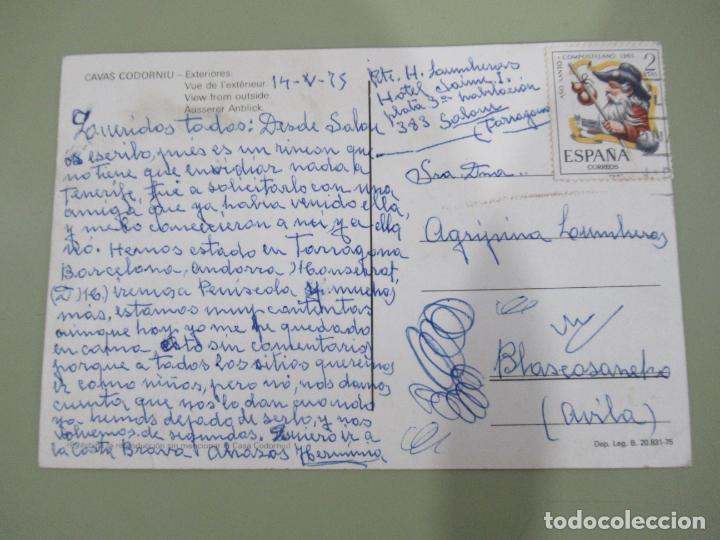 CAVAS CODORNIU – Exteriores.
Vue de l'extérieur.
View from outside.
Äusserer Anblick.
14-V-75
Queridos todos: Desde Salou
os escribo, pues es un rincon que
no tiene que envidiar nada a
Tenerife, fué a solicitarlo con una
amiga que ya habia venido ella,
y me lo concedieron a mi y a ella
no. Hemos estado en Tarragona
Barcelona, Andorra, Monserrat,
iremos a Peñiscola y muchos
más, estamos muy contentas
aunque hoy yo me he quedado
en cama, esto sin comentarios
porque a todos los sitios queremos
ir como niños, pero nó, nos damos
cuenta que nos lo dan cuando
ya hemos dejado de serlo, y nos
volvemos de segundas. Quiero ir a
la Costa Brava Abrazos Herminia
reproducción sin mencionar Casa Codorniu
Rte. H. Laumheras
Hotel Jaime I.
plata 3ª habitacion
383 Salou
(Tarragona
AÑO SANTO COMPOSTELANO 1965
2
PTAS
ESPAÑA
CORREOS
Sra Dna..
Agripina Laumheras
Blascosancho
(Avila)
Dep. Leg. B. 20.831-75
todocoleccion.net